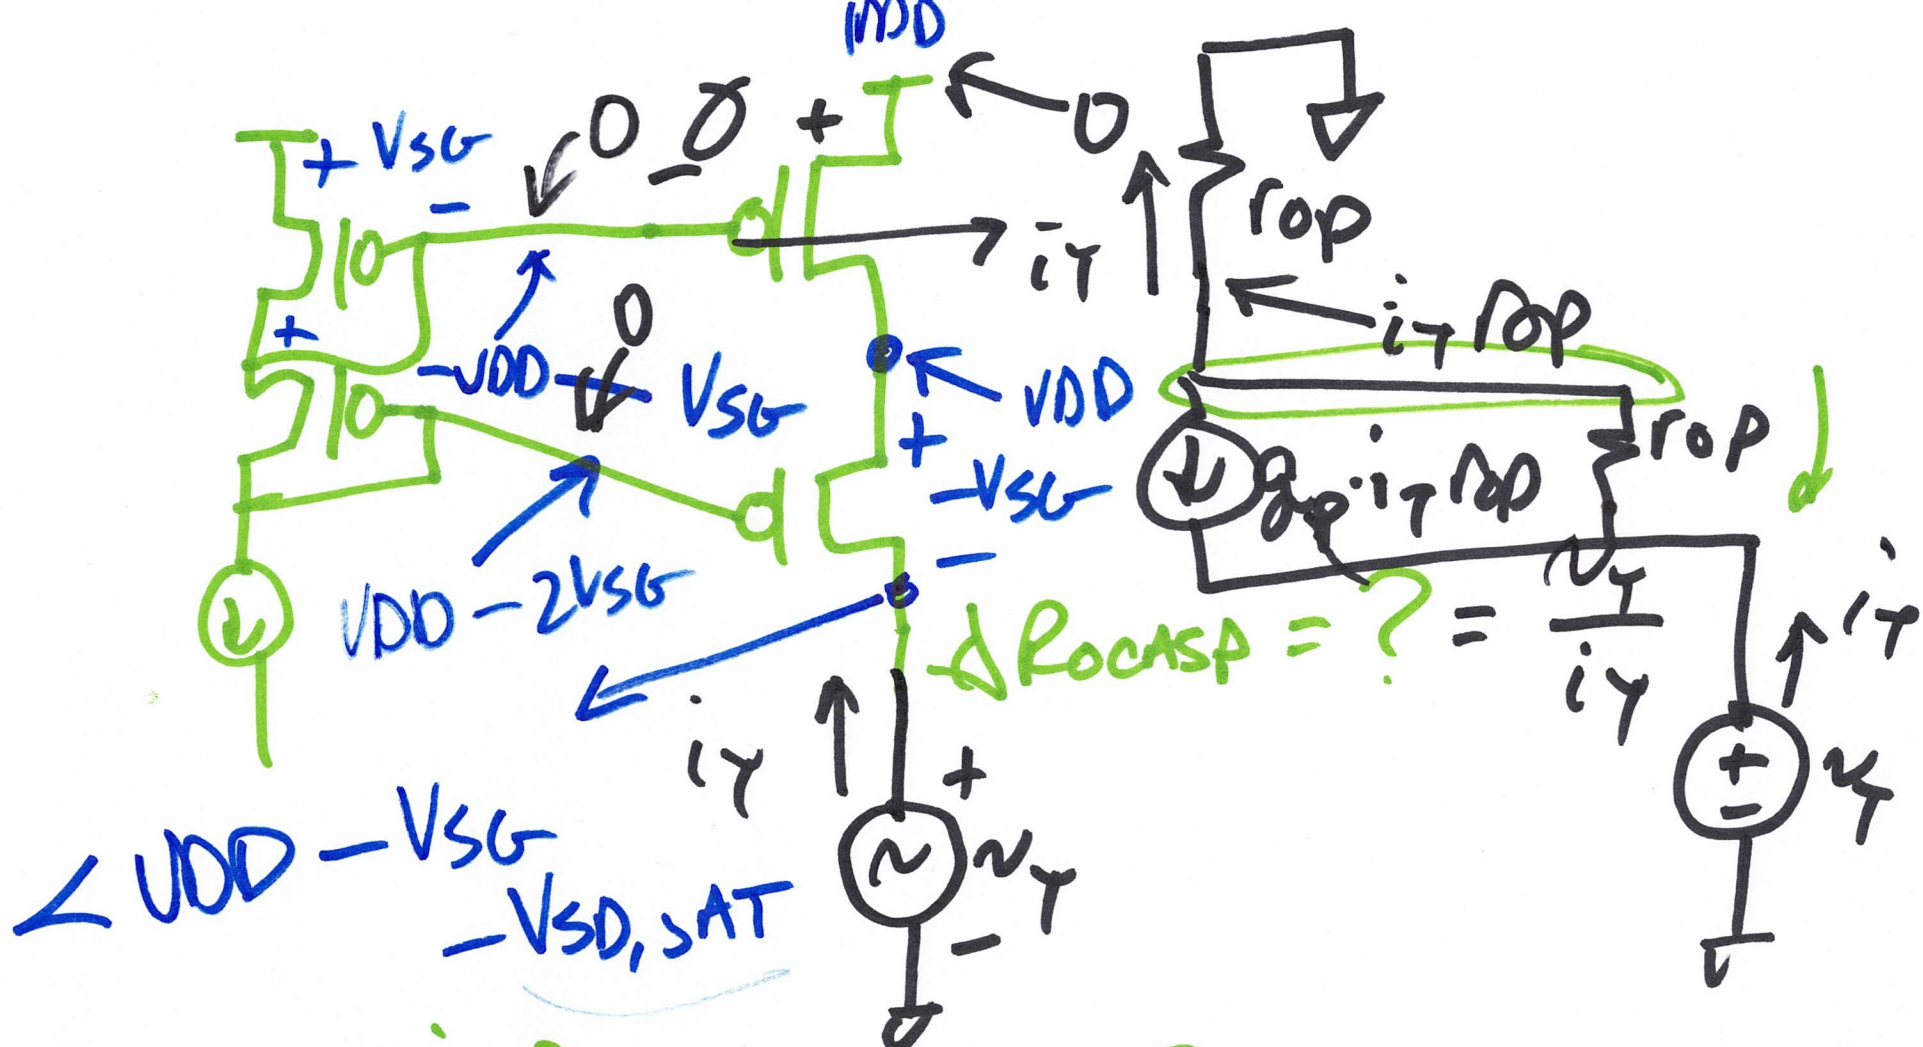 VDD
0
0
0
+
+ VSG
-
-
iT
rop
iT rop
0
+
-VDD - VSG
VDD
+
-VSG
-
rop
gmp·iT rop
VDD - 2VSG
ROCASP = ? = vT / iT
iT
iT
+
vT
-
+
-
vT
< VDD - VSG
- VSD, SAT